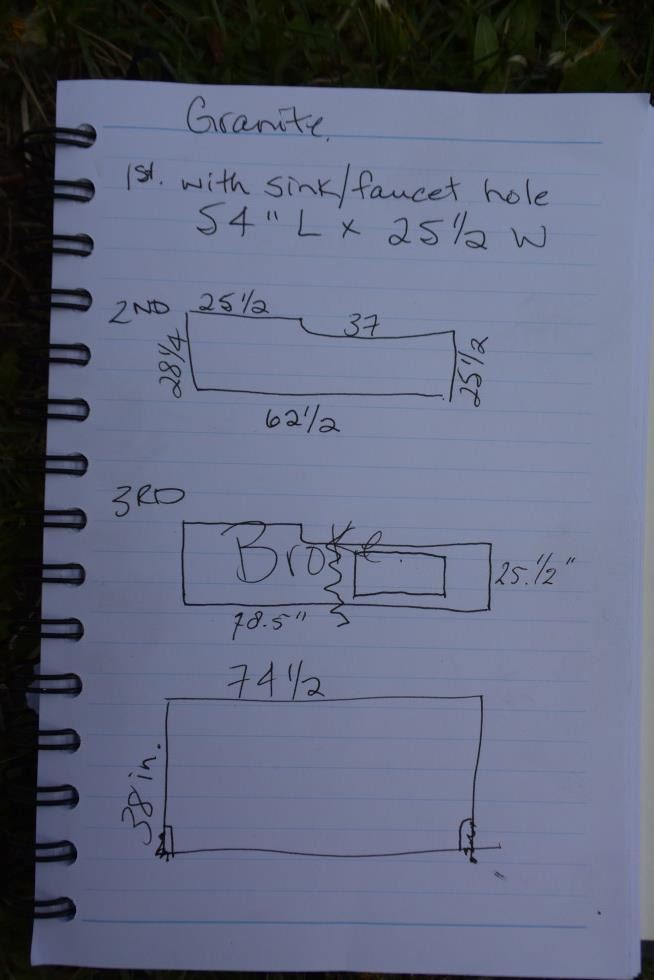 Granite.
1st. with sink/faucet hole
54" L x 25 1/2 W
2ND 25 1/2
37
28 1/4
25 1/2
62 1/2
3RD
Broke.
25.1/2"
78.5"
74 1/2
38 in.